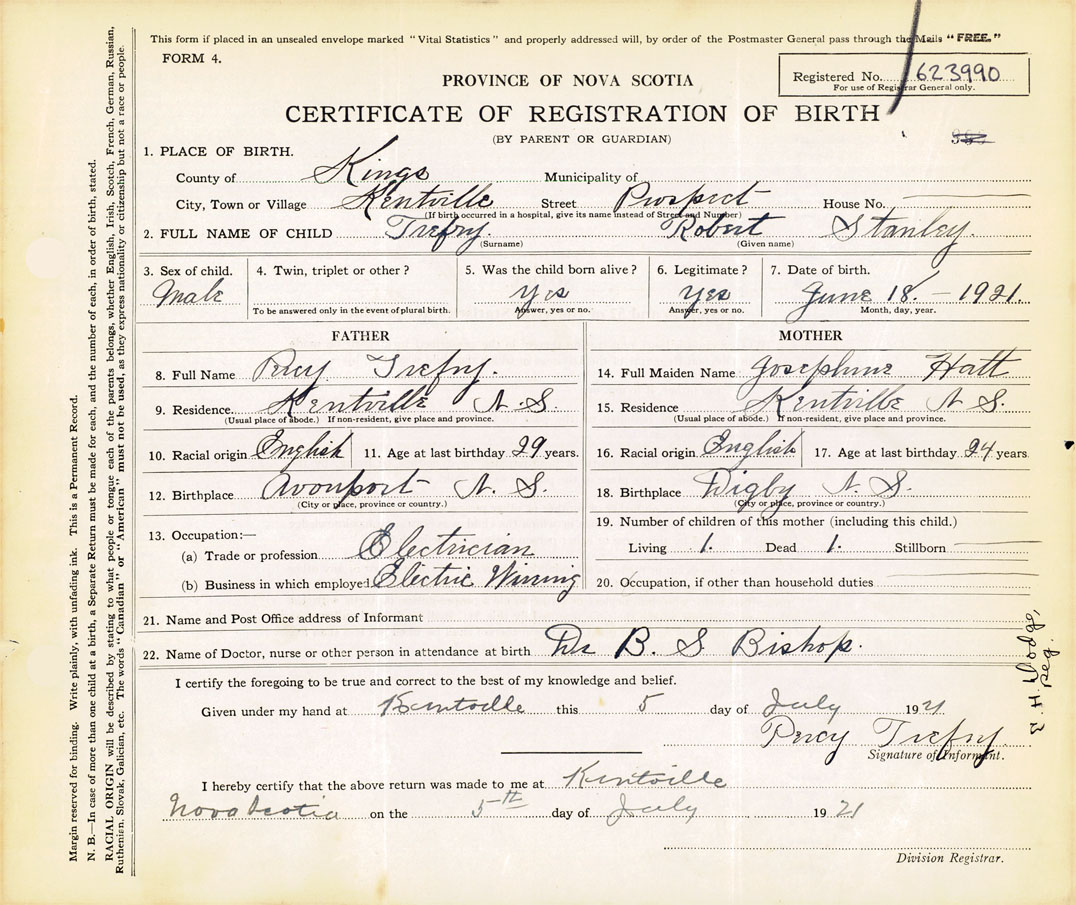 This form if placed in an unsealed envelope marked "Vital Statistics" and properly addressed will, by order of the Postmaster General pass through the Mails "FREE."
FORM 4.
PROVINCE OF NOVA SCOTIA
Registered No. 623990
For use of Registrar General only.
CERTIFICATE OF REGISTRATION OF BIRTH
(BY PARENT OR GUARDIAN)
1. PLACE OF BIRTH.
County of Kings Municipality of
City, Town or Village Kentville Street Prospect House No.
(If birth occurred in a hospital, give its name instead of Street and Number)
2. FULL NAME OF CHILD Trefry. Robert Stanley.
(Surname) (Given name)
3. Sex of child. 4. Twin, triplet or other? 5. Was the child born alive? 6. Legitimate? 7. Date of birth.
Male yes yes June 18. - 1921.
To be answered only in the event of plural birth. Answer, yes or no. Answer, yes or no. Month, day, year.
FATHER
8. Full Name Percy Trefry.
9. Residence. Kentville N. S.
(Usual place of abode.) If non-resident, give place and province.
10. Racial origin English 11. Age at last birthday 29 years.
12. Birthplace Avonport N. S.
(City or place, province or country.)
13. Occupation:—
(a) Trade or profession Electrician
(b) Business in which employed Electric Wirring
MOTHER
14. Full Maiden Name Josephine Hatt
15. Residence Kentville N. S.
(Usual place of abode.) If non-resident, give place and province.
16. Racial origin English 17. Age at last birthday 24 years
18. Birthplace Digby N. S.
(City or place, province or country.)
19. Number of children of this mother (including this child.)
Living 1. Dead 1. Stillborn
20. Occupation, if other than household duties
21. Name and Post Office address of Informant
22. Name of Doctor, nurse or other person in attendance at birth Dr B. S Bishop.
I certify the foregoing to be true and correct to the best of my knowledge and belief.
Given under my hand at Kentville this 5 day of July 1921
Percy Trefry.
Signature of Informant.
I hereby certify that the above return was made to me at Kentville
Nova Scotia on the 5th day of July 1921
Division Registrar.
E. H. Dodge,
Reg.
Margin reserved for binding. Write plainly, with unfading ink. This is a Permanent Record.
N. B.—In case of more than one child at a birth, a Separate Return must be made for each, and the number of each, in order of birth, stated.
RACIAL ORIGIN will be described by stating to what people or tongue each of the parents belongs, whether English, Irish, Scotch, French, German, Russian,
Ruthenian, Slovak, Galician, etc. The words "Canadian" or "American" must not be used, as they express nationality or citizenship but not a race or people.